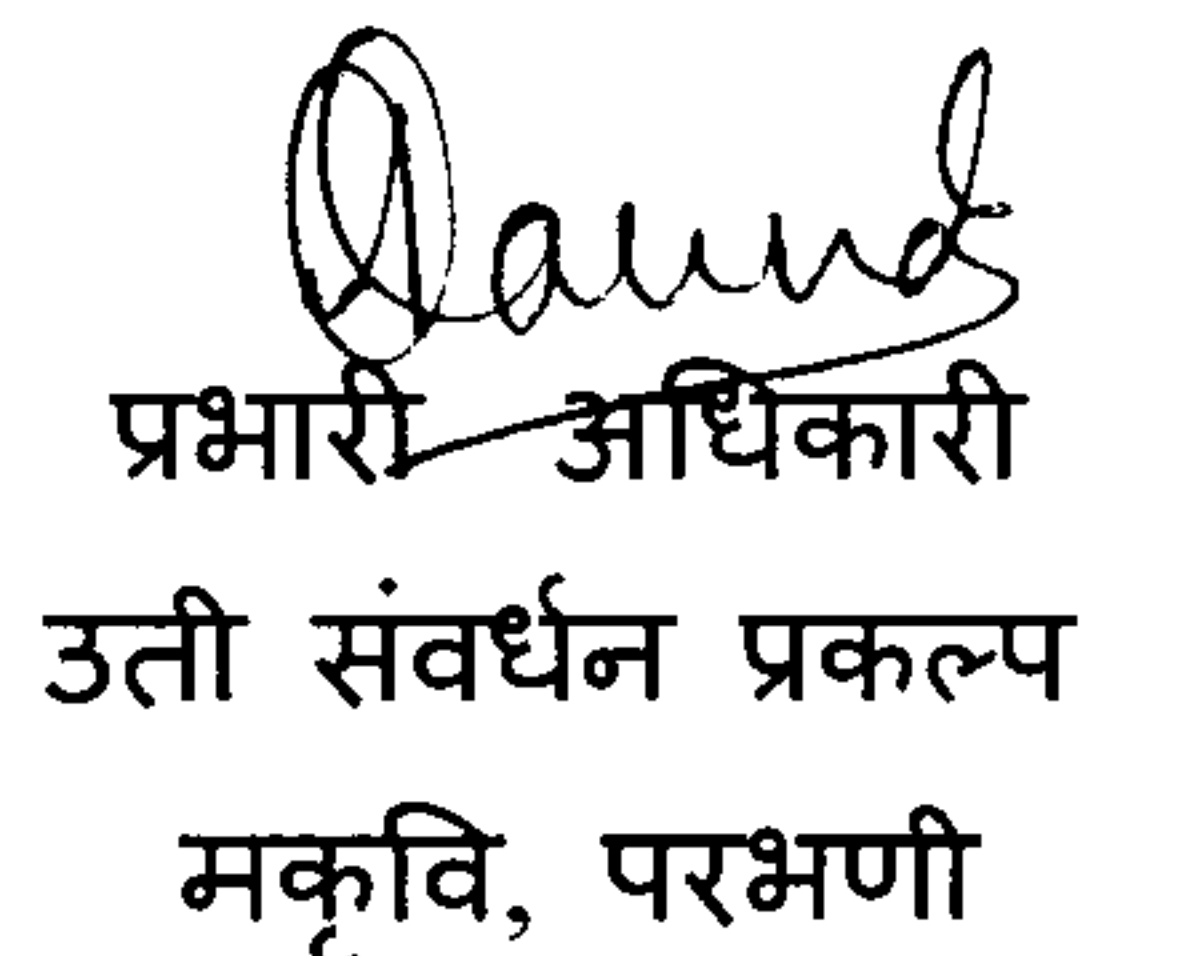 प्रभारी अधिकारी
उती संवर्धन प्रकल्प
मकृवि, परभणी